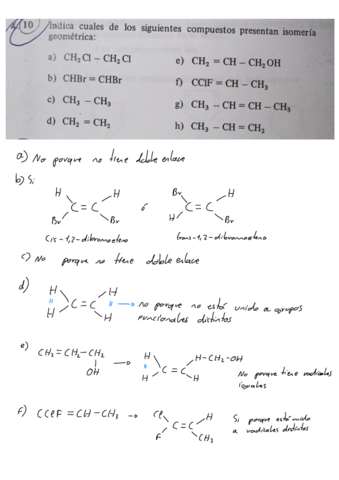 10 Indica cuales de los siguientes compuestos presentan isomería
geométrica:
a) CH₂Cl – CH₂Cl
b) CHBr = CHBr
c) CH₃ – CH₃
d) CH₂ = CH₂
e) CH₂ = CH – CH₂OH
f) CClF = CH – CH₃
g) CH₃ – CH = CH – CH₃
h) CH₃ – CH = CH₂
a) No porque no tiene doble enlace
b) Si
H H Br H
C=C ó C=C
Br Br H Br
Cis-1,2-dibromoeteno trans-1,2-dibromoeteno
c) No porque no tiene doble enlace
d) H H
C=C no porque no está unido a grupos
H H funcionales distintos
e) CH₂=CH₂-CH₂ H H-CH₂-OH
OH C=C No porque tiene radicales
H H iguales
F) CClF=CH-CH₃ Cl H Si porque está unido
C=C a radicales distintos
F CH₃